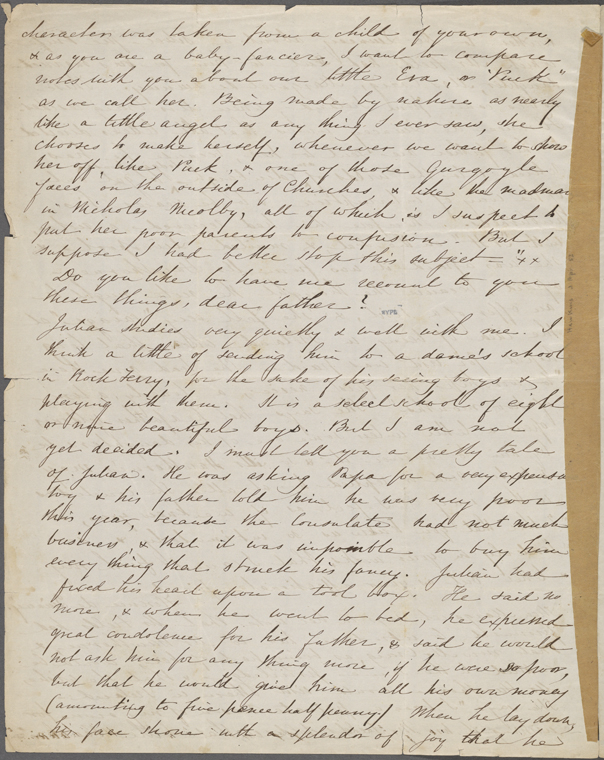 character was taken from a child of your own,
& as you are a baby-fancier, I want to compare
notes with you about our little Eva, or "Puck"
as we call her. Being made by nature as nearly
like a little angel as any thing I ever saw, she
chooses to make herself, whenever we want to show
her off, like Puck, & one of those Gurgoyle
faces on the outside of Churches, & like the madman
in Nicholas Nicolby, all of which, is I suspect to
put her poor parents to confusion. But I
suppose I had better stop this subject = "××
Do you like to have me recount to you
these things, dear father?
NYPL
Julian studies very quietly & well with me. I
think a little of sending him to a dame's school
in Rock Ferry, for the sake of his seeing boys &
playing with them. It is a select school of eight
or nine beautiful boys. But I am not
yet decided. I must tell you a pretty tale
of Julian. He was asking Papa for a very expensive
toy & his father told him he was very poor
this year, because the Consulate had not much
business, & that it was impossible to buy him
every thing that struck his fancy. Julian had
fixed his heart upon a tool box. He said no
more, & when he went to bed, he expressed
great condolence for his father, & said he would
not ask him for any thing more, if he were so poor,
but that he would give him all his own money
(amounting to five pence half penny) When he lay down,
his face shone with a splendor of joy that he